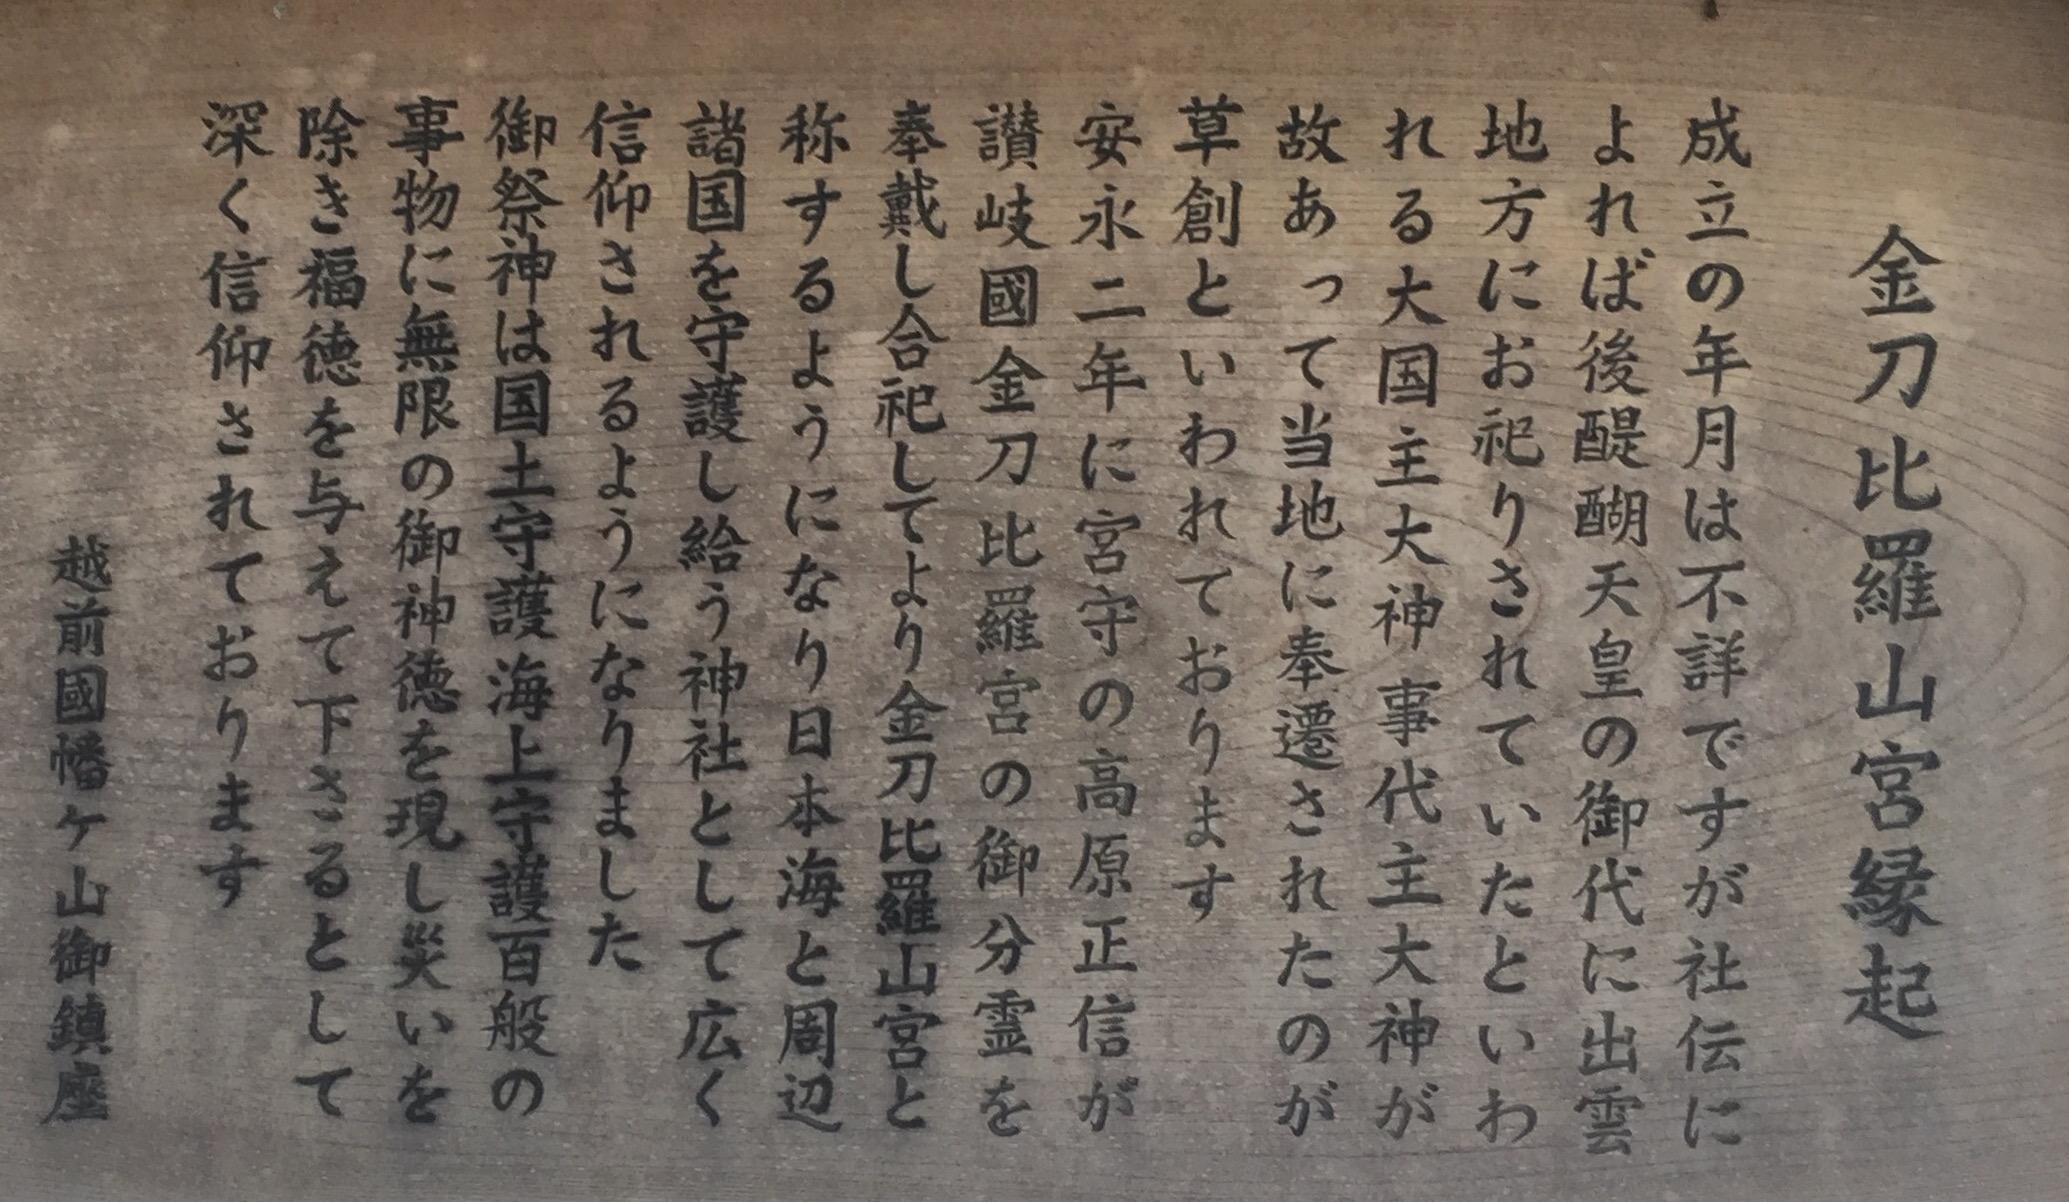 金刀比羅山宮縁起
成立の年月は不詳ですが社伝に
よれば後醍醐天皇の御代に出雲
地方にお祀りされていたといわ
れる大国主大神事代主大神が
故あって当地に奉遷されたのが
草創といわれております
安永二年に宮守の高原正信が
讃岐國金刀比羅宮の御分霊を
奉戴し合祀してより金刀比羅山宮と
称するようになり日本海と周辺
諸国を守護し給う神社として広く
信仰されるようになりました
御祭神は国土守護海上守護百般の
事物に無限の御神徳を現し災いを
除き福徳を与えて下さるとして
深く信仰されております
越前國幡ケ山御鎮座